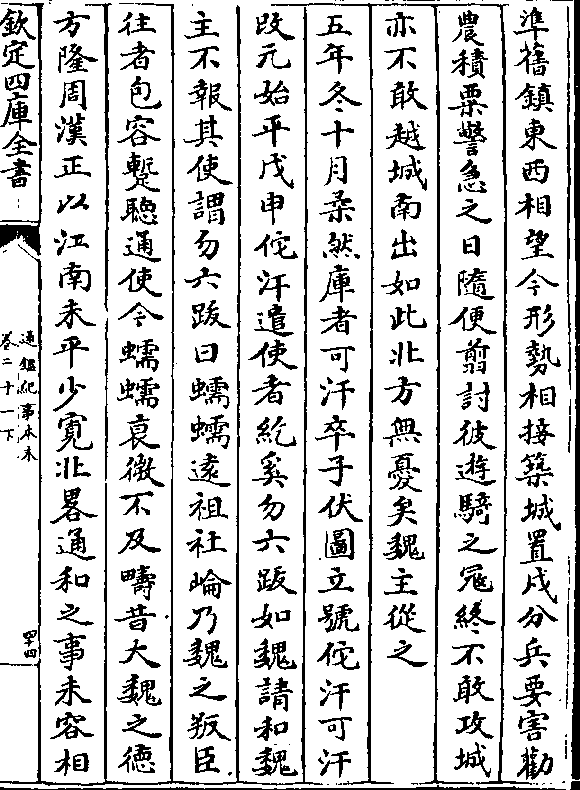 準舊鎮東西相望今形勢相接築城置戍分兵要害勸
農積粟警急之日隨便翦討彼遊騎之冦終不敢攻城
亦不敢越城南出如此北方無憂矣魏主從之
五年冬十月柔然庫者可汗卒子伏圖立號佗汗可汗
改元始平戊申佗汗遣使者紇奚勿六跋如魏請和魏
主不報其使謂勿六跋曰蠕蠕逺祖社崘乃魏之叛臣
往者包容蹔聽通使今蠕蠕衰微不及疇昔大魏之徳
方隆周漢正以江南未平少寛北畧通和之事未容相
欽定四庫全書
通鑑紀事本末
卷二十一下
四十四